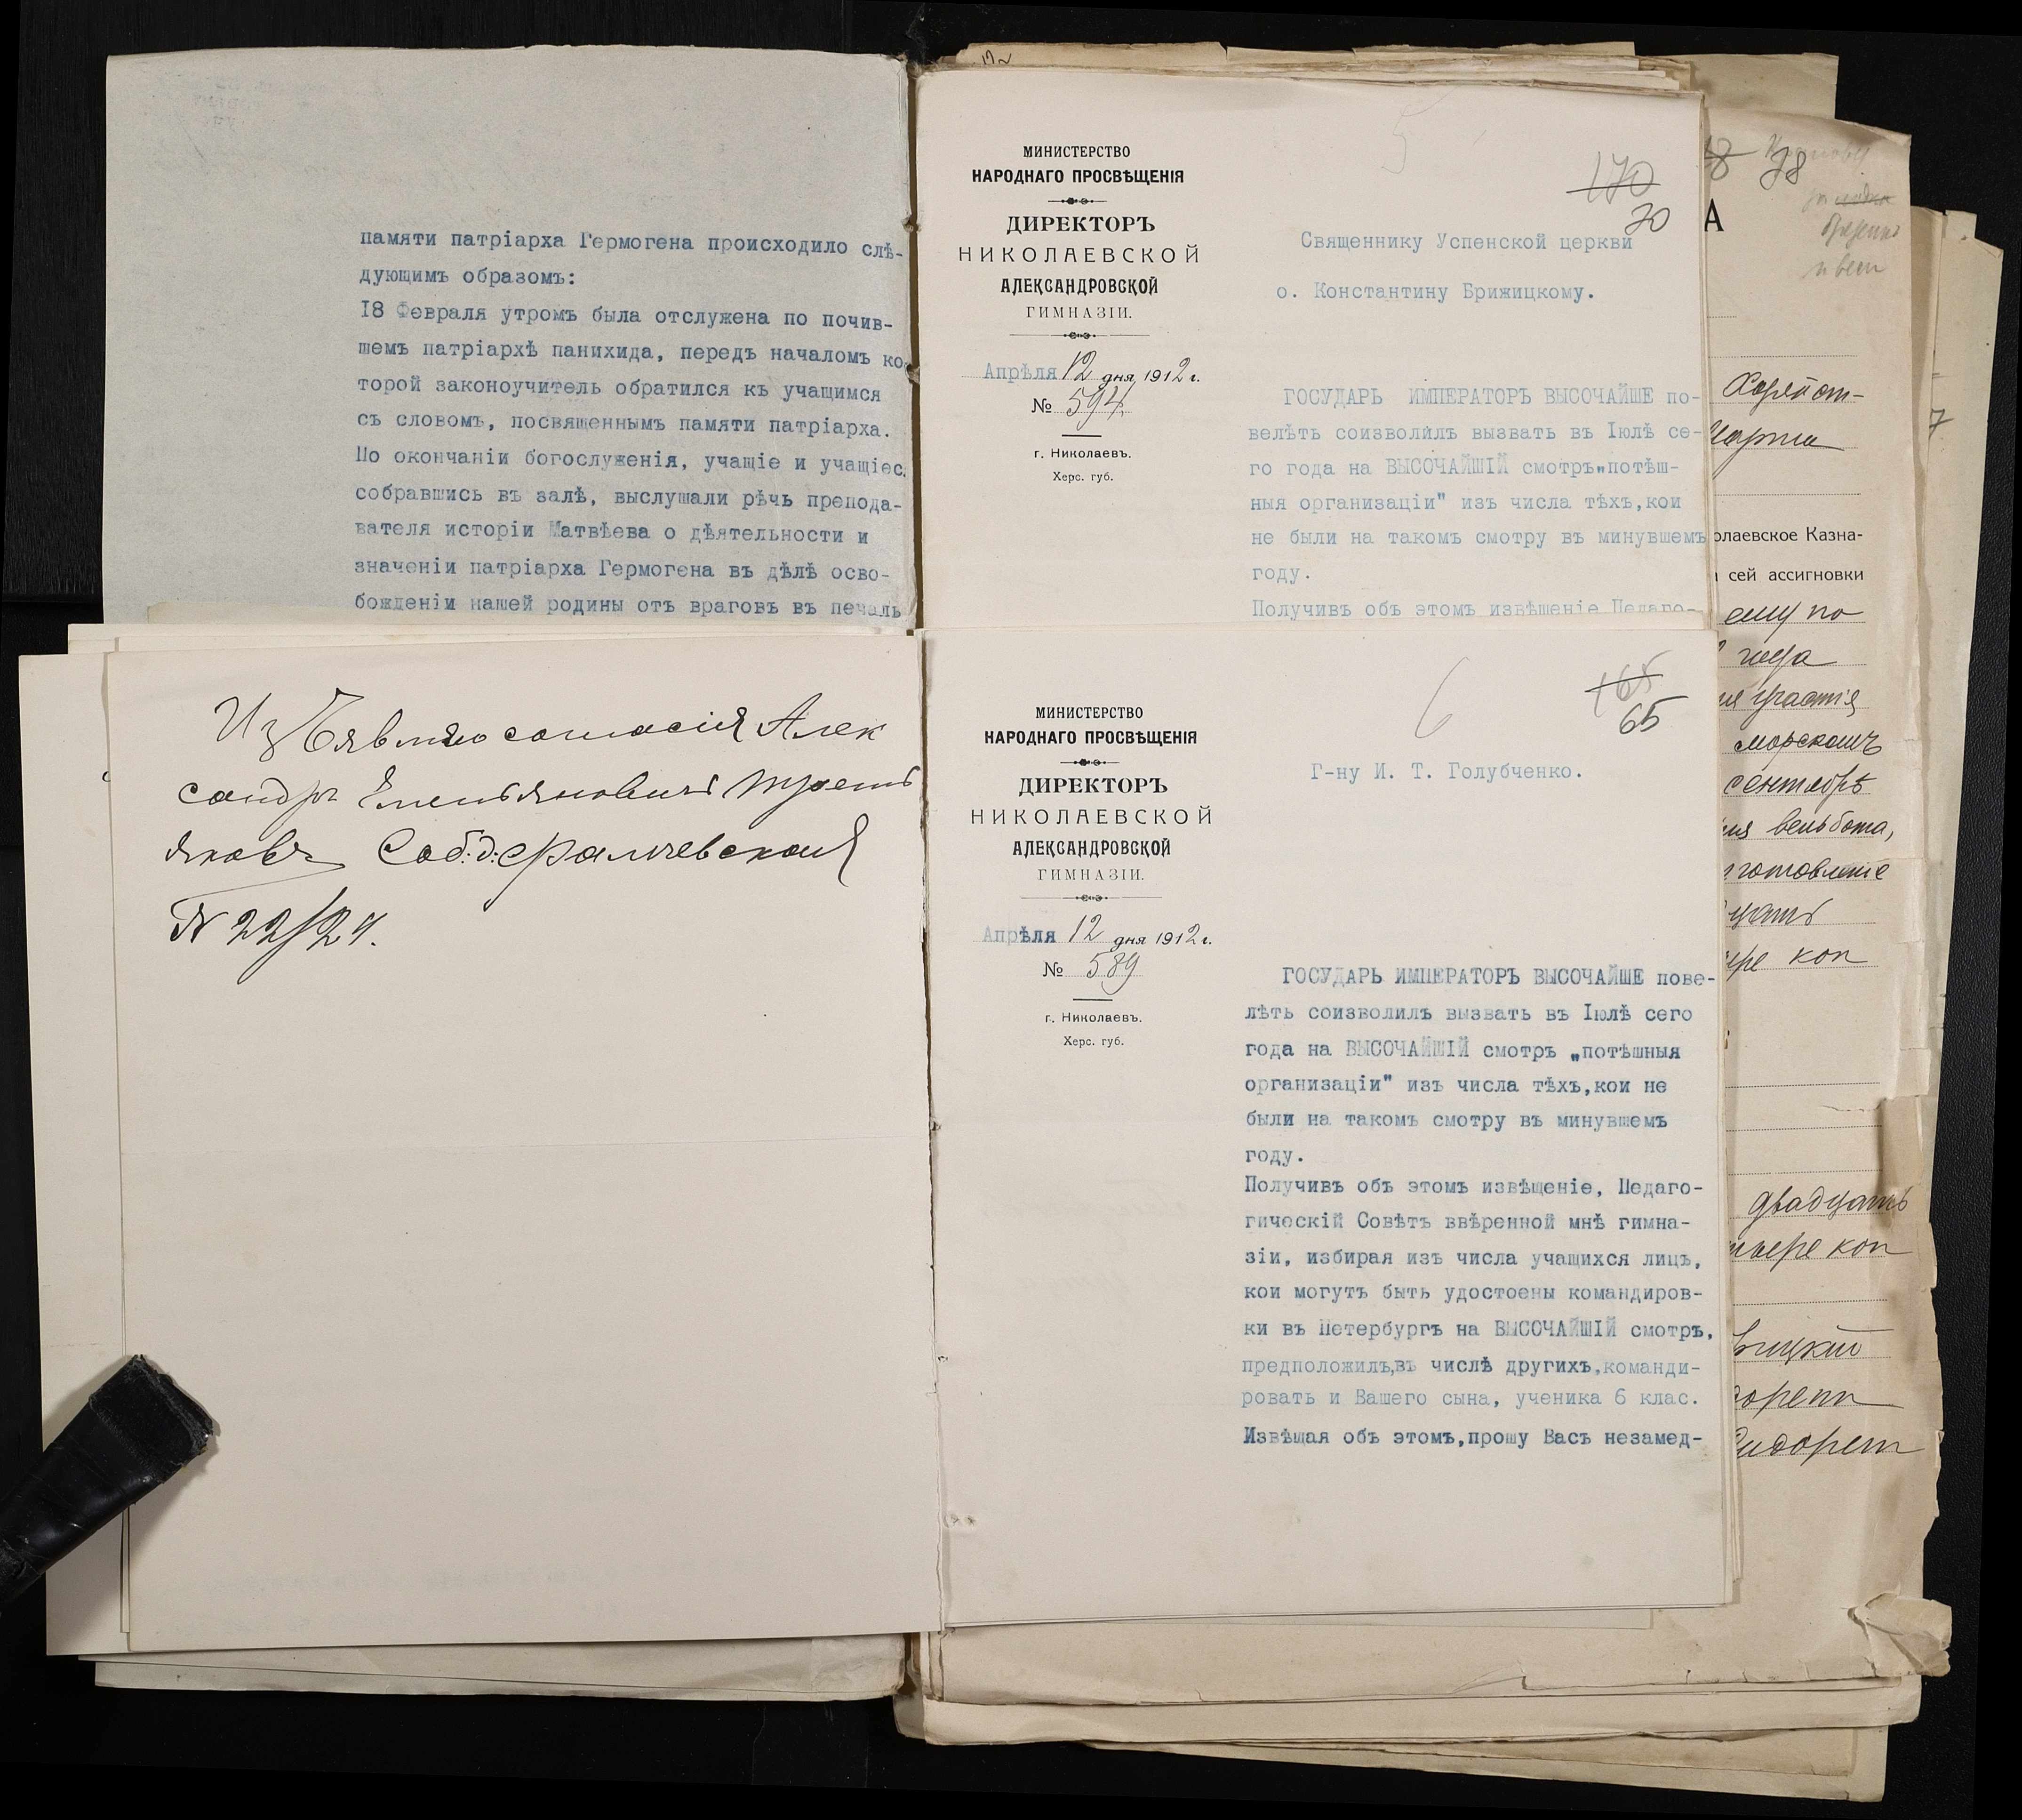 памяти патріарха Гермогена происходило слѣ-
дующимъ образомъ:
18 Февраля утромъ была отслужена по почив-
шемъ патріархѣ панихида, передъ началомъ ко
торой законоучитель обратился къ учащимся
съ словомъ, посвященнымъ памяти патріарха.
По окончаніи богослуженія, учащіе и учащіес
собравшись въ залѣ, выслушали рѣчь препода-
вателя исторіи Матвѣева о дѣятельности и
значеніи патріарха Гермогена въ дѣлѣ осво-
божденіи нашей родины отъ враговъ въ печаль
5
170
70
МИНИСТЕРСТВО
НАРОДНАГО ПРОСВѢЩЕНІЯ
ДИРЕКТОРЪ
НИКОЛАЕВСКОЙ
АЛЕКСАНДРОВСКОЙ
ГИМНАЗІИ.
Апрѣля 12 дня 1912 г.
№ 594.
г. Николаевъ.
Херс. губ.
Священнику Успенской церкви
о. Константину Брижицкому.
ГОСУДАРЬ ИМПЕРАТОРЪ ВЫСОЧАЙШЕ по-
велѣть соизволилъ вызвать въ Іюлѣ се-
го года на ВЫСОЧАЙШІЙ смотръ„потѣш-
ныя организаціи" изъ числа тѣхъ,кои
не были на такомъ смотру въ минувшемъ
году.
Получивъ объ этомъ извѣщеніе Педаго-
Изъявляю согласія Алек
сандръ Емельяновичъ Трет
яковъ
N 22/24.
6
165
65
МИНИСТЕРСТВО
НАРОДНАГО ПРОСВѢЩЕНІЯ
ДИРЕКТОРЪ
НИКОЛАЕВСКОЙ
АЛЕКСАНДРОВСКОЙ
ГИМНАЗІИ.
Апрѣля 12 дня 1912 г.
№ 589
г. Николаевъ.
Херс. губ.
Г-ну И. Т. Голубченко.
ГОСУДАРЬ ИМПЕРАТОРЪ ВЫСОЧАЙШЕ пове-
лѣть соизволилъ вызвать въ Іюлѣ сего
года на ВЫСОЧАЙШІЙ смотръ „потѣшныя
организаціи" изъ числа тѣхъ,кои не
были на такомъ смотру въ минувшемъ
году.
Получивъ объ этомъ извѣщеніе, Педаго-
гическій Совѣтъ ввѣренной мнѣ гимна-
зіи, избирая изъ числа учащихся лицъ,
кои могутъ быть удостоены командиров-
ки въ Петербургъ на ВЫСОЧАЙШІЙ смотръ,
предположилъ,въ числѣ другихъ,команди-
ровать и Вашего сына, ученика 6 клас.
Извѣщая объ этомъ,прошу Васъ незамед-
38
А
марта
олаевское Казна-
сей ассигновки
ему по
года
участія
морскомъ
сентябрѣ
вельбота,
готовленіе
коп
двадцать
коп
7